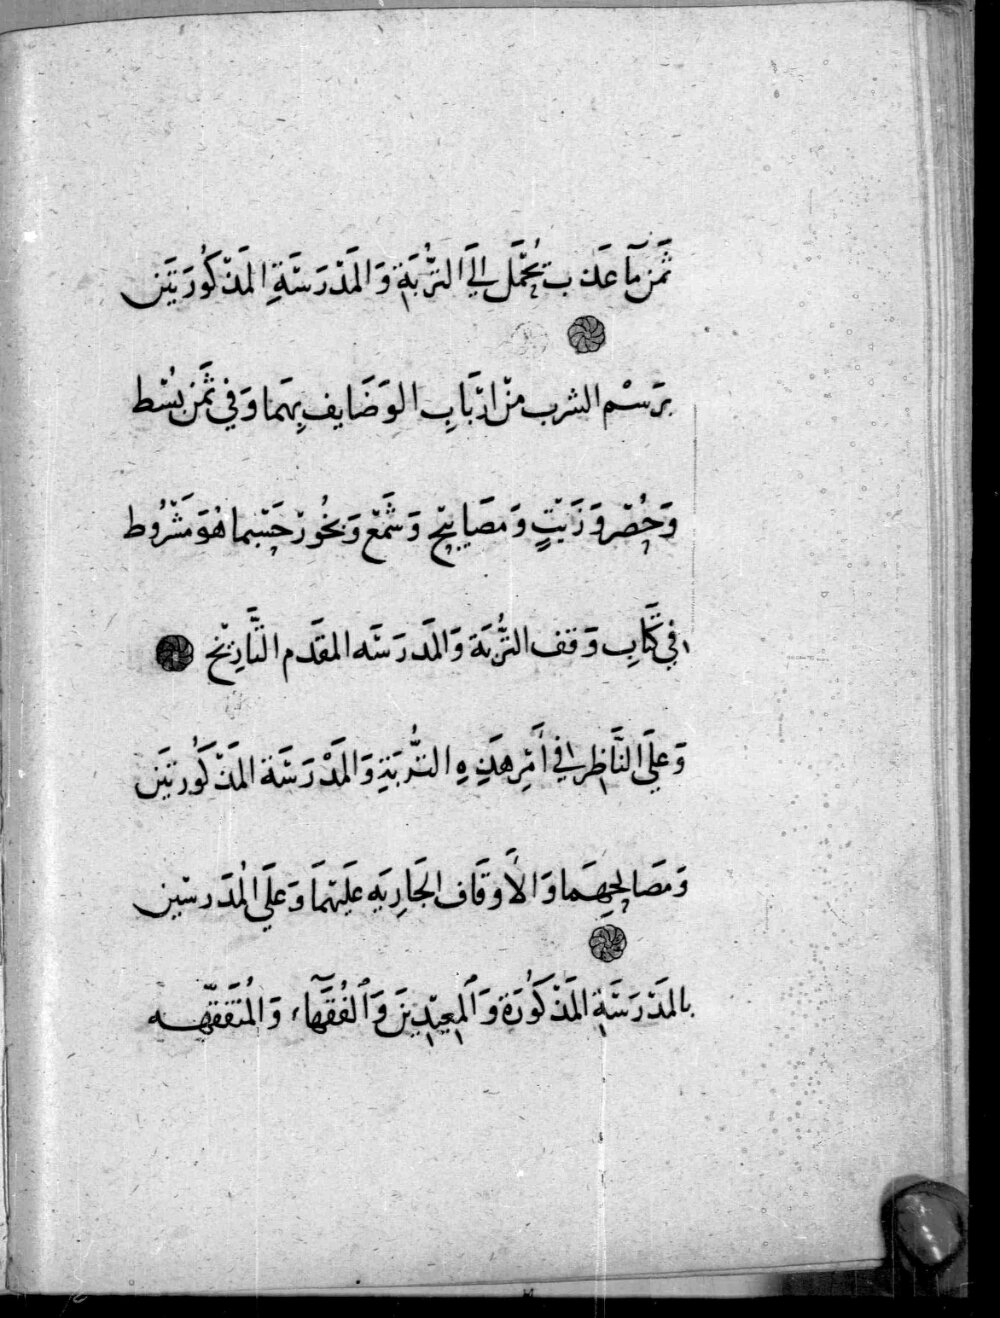 ثَمَن مآ عَذب يُحْمَل إلَى التُّرْبَةِ وَالمَدْرَسَةِ المَذْكُورَتَين
بِرَسْم الشرب مِنْ ارْبَابِ الوَضَايف بِهَما وَفي ثَمَن بُسْط
وَحُصْر وَزَيْتٍ وَمصَابِيْح وَشَمْع وَبخُورْ حَسْبما هُوَ مَشْرُوط
في كتَابِ وَقف التُّرْبَة وَالمَدرَسَه المقَدَم التَّارِيْخ
وَعلَى النَّاظِر في أَمْر هَذِهِ التُّرْبَةِ وَالمَدْرَسَة المَذْكُورتَين
وَمصَالِحِهِمَا وَالأَوقَاف الجَارِيَه عَلَيْهمَا وَعَلَى المُدَرسْين
بالمَدْرَسَةِ المَذْكُورَة وَالمعِيْدِينَ وَالفُقَهَآء وَالمُتَفَقِّهه